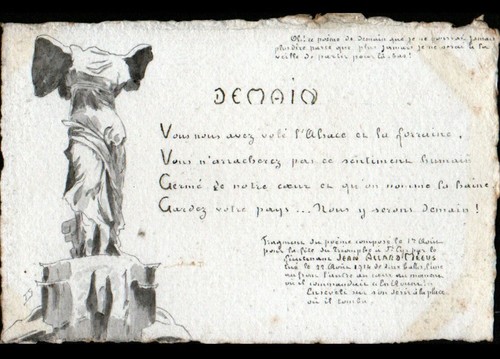 Oh! ce poème de demain que je ne pourrai jamais
plus dire parce que plus jamais je ne serai à la
veille de partir pour là-bas!
DEMAIN
Vous nous avez volé l'Alsace et la Lorraine,
Vous n'arracherez pas ce sentiment humain
Germé de notre cœur et qu'on nomme la haine
Gardez votre pays... Nous y serons demain!
Fragment du poème composé le 1er Août
pour la fête du Triomphe à St Cyr par le
lieutenant JEAN ALLARD-MEEUS
tué le 22 Août 1914 de deux balles, l'une
au front l'autre au cœur au moment
où il commandait
la place
où il tomba.